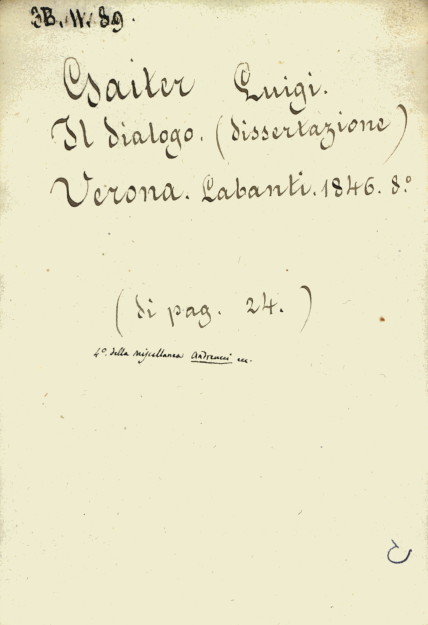 3B. W. 89.
Gaiter Luigi.
Il dialogo. (dissertazione)
Verona. Labanti. 1846. 8.º
(di pag. 24.)
4º. della miscellanea Andreucci ec.